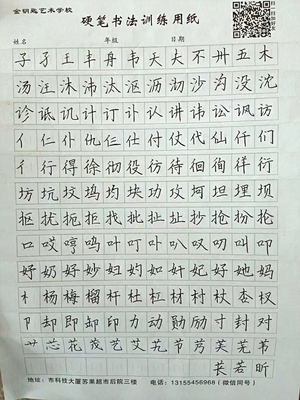 金钥匙艺术学校
硬笔书法训练用纸
姓名 年级 日期
子 孑 王 丰 舟 韦 天 大 不 卅 五 木
汤 汪 沐 沛 汰 沤 沥 沏 沙 沟 没 沈
诊 诋 讥 计 订 讣 认 讲 讳 讼 讽 访
亻 仁 仆 仇 仨 仕 付 仗 代 仙 仟 们
彳 行 得 徐 彻 役 彷 待 徊 徇 徉 衍
坊 坑 坟 坞 均 块 功 坎 坷 坦 埋 坝
抠 扰 扼 拒 找 批 扯 扯 抄 抢 扮 抡
口 哎 哼 鸣 叶 叮 卟 叭 叹 叨 叫 叩
妤 奶 好 妙 妇 妁 如 奸 妃 好 她 妈
木 杨 梅 榴 杆 杜 杠 材 村 杖 杏 权
卩 却 即 卸 印 力 动 勋 励 寸 封 对
艹 芯 花 茂 艺 艾 艽 节 芳 芙 芜 节
苌 若 昕
地址：市科技大厦苏果超市后院三楼 电话：13155456968（微信同号）